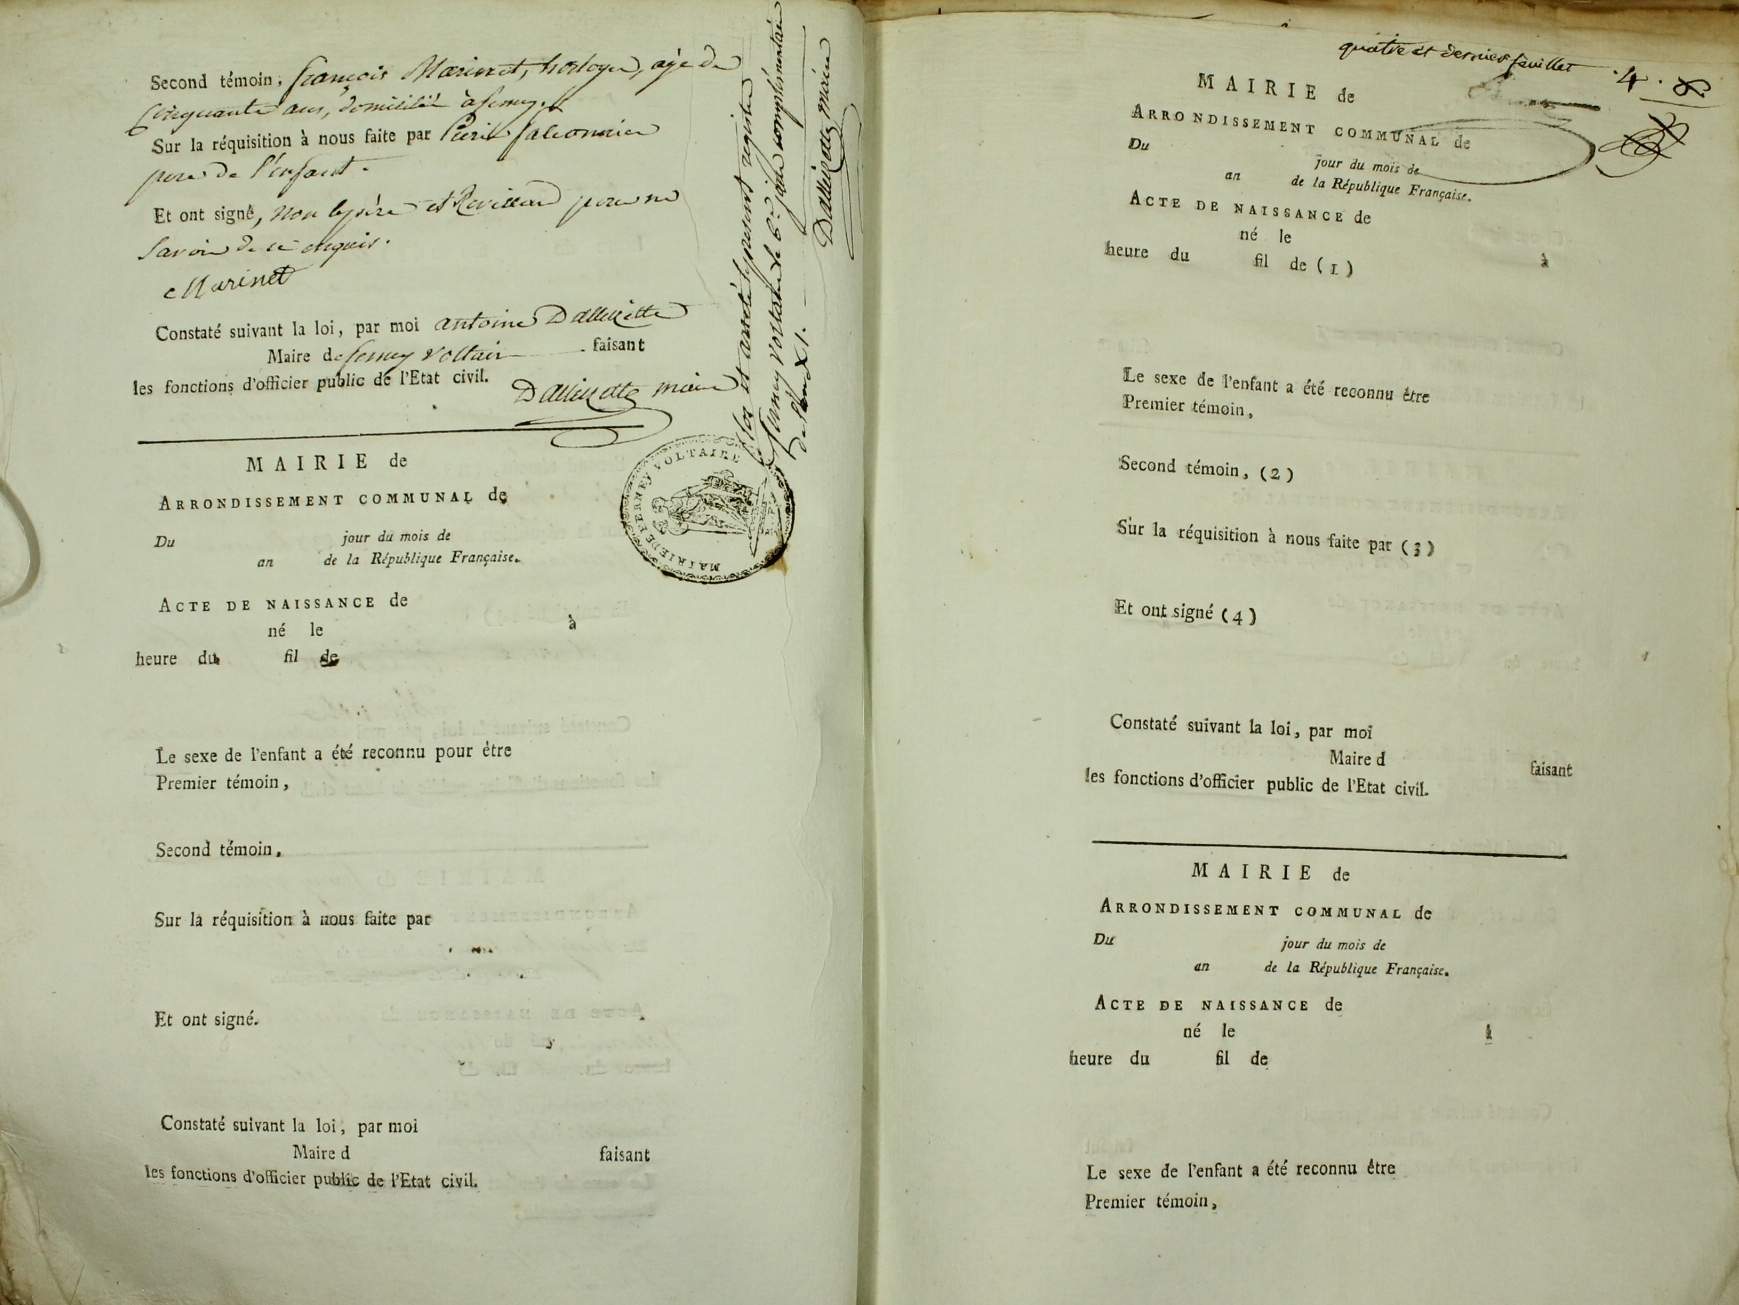 Second témoin, françois Marinet, horloger, agé de
Cinquante ans, domicilié à ferney.
Sur la réquisition à nous faite par
pere de l'enfant.
Et ont signé, non le père et Revillod pour ne
Savoir de ce enquis.
Marinet
Constaté suivant la loi, par moi antoine Dallizette
Maire de ferney Voltair faisant
les fonctions d'officier public de l'Etat civil.
Dallizette maire
MAIRIE de
ARRONDISSEMENT COMMUNAL de
Du jour du mois de
an de la République Française.
ACTE DE NAISSANCE de
né le à
heure du fil de
Le sexe de l'enfant a été reconnu pour être
Premier témoin,
Second témoin,
Sur la réquisition à nous faite par
Et ont signé.
Constaté suivant la loi, par moi
Maire d faisant
les fonctions d'officier public de l'Etat civil.
Clos et arrêté le présent registre
Ferney voltaire le 6.e jour complémentaire
de l'an XI.
Dallizette maire
MAIRIE DE FERNEY VOLTAIRE
quatre et dernier feuillet 4. 8.
MAIRIE de
ARRONDISSEMENT COMMUNAL de
Du jour du mois de
an de la République Française.
ACTE DE NAISSANCE de
né le à
heure du fil de (1)
Le sexe de l'enfant a été reconnu être
Premier témoin,
Second témoin, (2)
Sur la réquisition à nous faite par (3)
Et ont signé (4)
Constaté suivant la loi, par moi
Maire d faisant
les fonctions d'officier public de l'Etat civil.
MAIRIE de
ARRONDISSEMENT COMMUNAL de
Du jour du mois de
an de la République Française.
ACTE DE NAISSANCE de
né le à
heure du fil de
Le sexe de l'enfant a été reconnu être
Premier témoin,